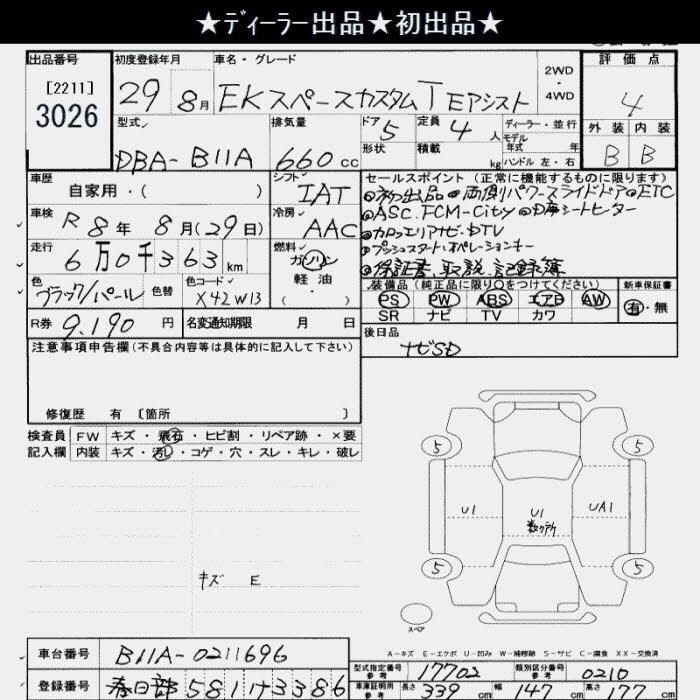 ★ディーラー出品★初出品★
出品番号 初度登録年月 車名・グレード 2WD・4WD 評価点
[2211]
3026 29 8月 EKスペースカスタムT Eアシスト 4
型式 排気量 ドア5 定員4人 ディーラー・並行 外装 内装
形状 積載 kg モデル年式 年
DBA-B11A 660cc ハンドル 左・右 B B
車歴 自家用・( ) シフト IAT セールスポイント(正常に機能するものに限ります)
◎初出品 ◎両側パワースライドドア◎ETC
車検 R8年 8月(29日) 冷房 AAC ◎ASC.FCM-City ◎D席シートヒーター
◎カロッエリアナビ・DTV
走行 6万0千363km 燃料 ガソリン・軽油( ) ◎プッシュスタート・オペレーションキー
◎保証書 取説 記録簿
色 ブラック/パール 色替 色コード X42W13 装備品(純正品に限り○をつけてください) 新車保証書
PS PW ABS エアB AW 有・無
SR ナビ TV カワ
R券 9,190円 名変通知期限 月 日 後日品
注意事項申告欄(不具合内容等は具体的に記入して下さい) ナビSD
修復歴 有〔箇所 〕
検査員 FW キズ・飛石・ヒビ割・リペア跡・×要
記入欄 内装 キズ・汚レ・コゲ・穴・スレ・キレ・破レ
5 5
U1 U1 UA1
数ヶ所
5 5
キズ E
スペア
A-キズ E-エクボ U-凹み W-補修跡 S-サビ C-腐食 XX-交換済
車台番号 B11A-0211696 型式指定番号 参考 17702 類別区分番号 参考 0210
登録番号 春日部 581 け 3386 車庫証明用 参考 長さ 339cm 幅 147cm 高さ 177cm